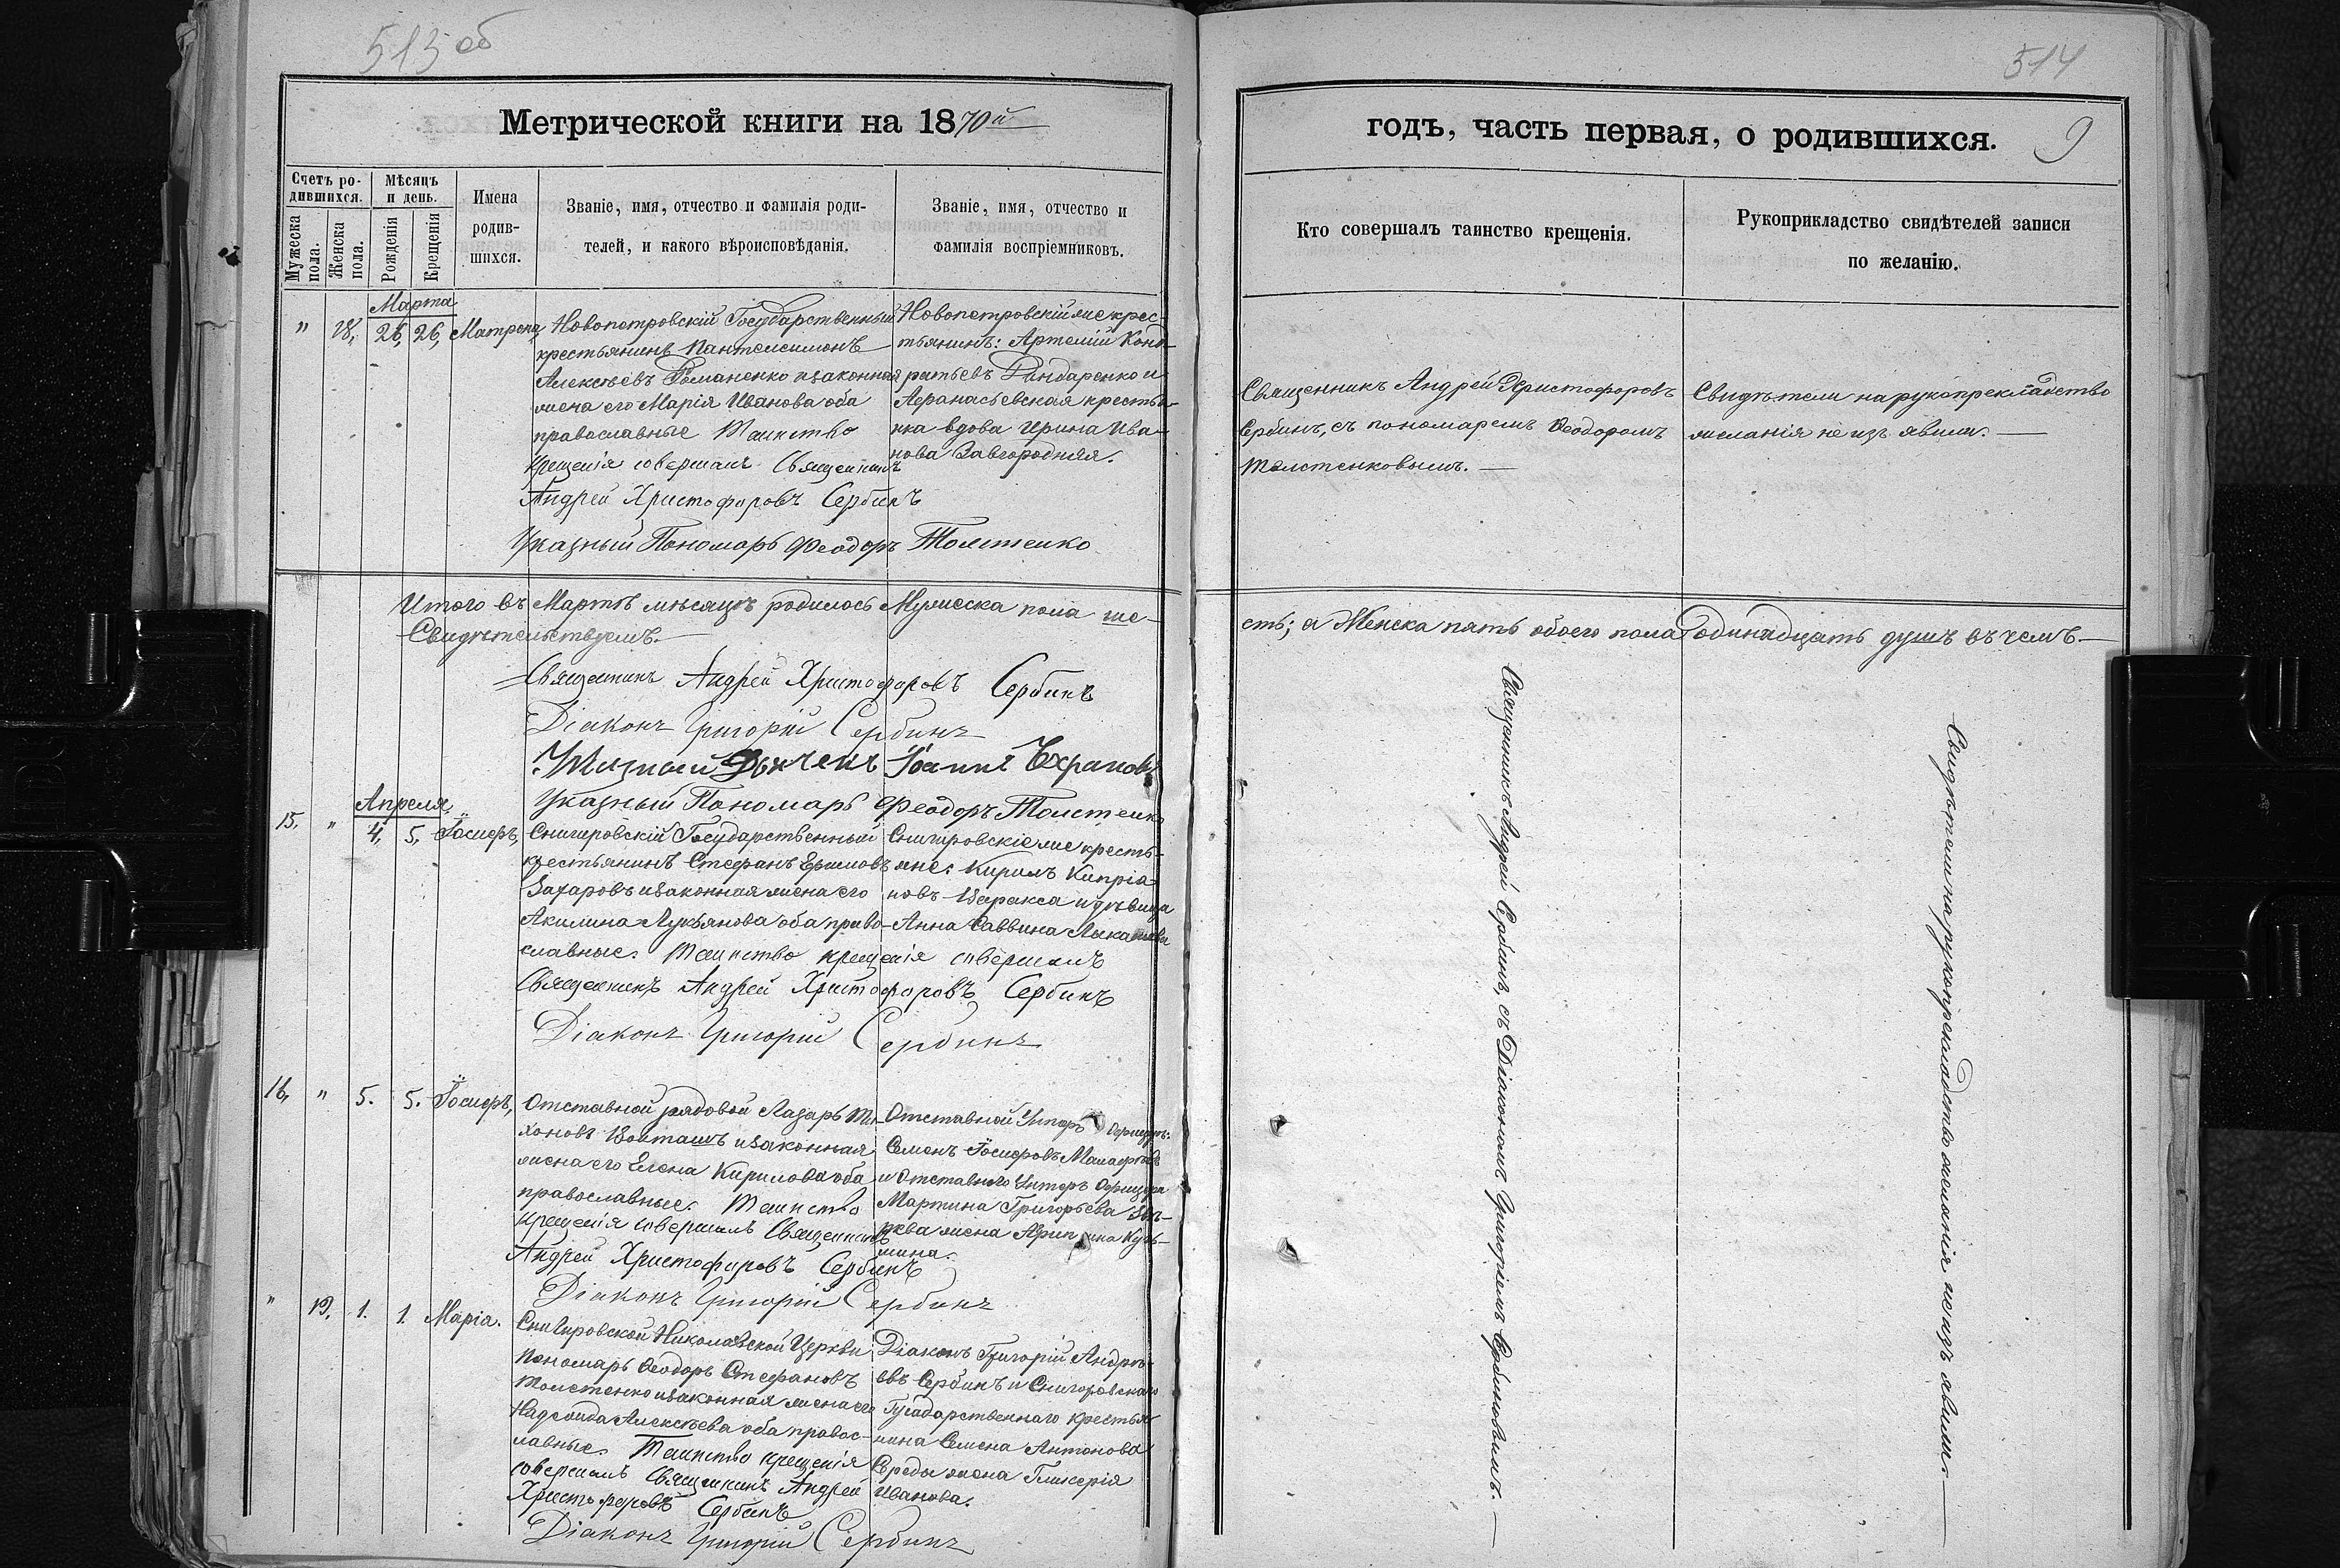 513 об
514
Метрической книги на 1870й
годъ, часть первая, о родившихся.
9
Счетъ ро-
дившихся.
Мужеска пола.
Женска пола.
Мѣсяцъ
и день.
Рожденія
Крещенія
Имена
родив-
шихся.
Званіе, имя, отчество и фамилія роди-
телей, и какого вѣроисповѣданія.
Званіе, имя, отчество и
фамилія воспріемниковъ.
Кто совершалъ таинство крещенія.
Рукоприкладство свидѣтелей записи
по желанію.
Марта
" 18, 26, 26, Матрена,
Новопетровскій Государственный
крестьянинъ Пантелеимонъ
Алексѣевъ Романенко и законная
жена его Марія Иванова оба
православные Таинство
Крещенія совершалъ Священникъ
Андрей Христофоровъ Сербинъ
Указный Пономарь Феодоръ Толстенко
Новопетровскій же крес-
тьянинъ: Артемій Конд-
ратьевъ Бондаренко и
Афанасьевская крестья-
нка вдова Ирина Ива-
нова Завгородняя.
Священникъ Андрей Христофоровъ
Сербинъ, съ пономаремъ Ѳеодоромъ
Толстенковымъ.
Свидѣтели на рукоприкладство
желанія не изъявили.
Итого въ Мартѣ мѣсяцѣ родилось Мужеска пола ше-
сть; а Женска пять обоего пола одинадцать душъ въ чемъ
Свидѣтельствуемъ.
Священникъ Андрей Христофоровъ Сербинъ
Діаконъ Григорій Сербинъ
Указный Дьячекъ Іоаннъ
Указный Пономарь Феодоръ Толстенко
Апреля
15. " 4, 5. Іосифъ,
Снигировскій Государственный
крестьянинъ Стефанъ Ефимовъ
Захаровъ и законная жена его
Акилина Лукьянова оба право-
славные. Таинство крещенія совершалъ
Священникъ Андрей Христофоровъ Сербинъ
Діаконъ Григорій Сербинъ
Снигировскіе же кресть-
яне: Кирилъ Кипріа-
новъ и дѣвица
Анна Саввина
16, " 5. 5. Іосифъ,
Отставной рядовой Лазарь Ти-
хоновъ Войташъ и законная
жена его Елена Кирилова оба
православные. Таинство
крещенія совершалъ Священникъ
Андрей Христофоровъ Сербинъ
Діаконъ Григорій Сербинъ
Отставной Унтеръ Офицеръ:
Семенъ Іосифовъ
и Отставного Унтеръ Офицера
Мартина Григорьева
жена Агрипина Кузь-
мина.
" 19, 1. 1. Марія.
Снигировской Николаевской Церкви
Пономарь Ѳеодоръ Стефановъ
Толстенко и законная жена его
Надежда Алексѣева оба правос-
лавные. Таинство крещенія
совершалъ Священникъ Андрей
Христофоровъ Сербинъ
Діаконъ Григорій Сербинъ
Діаконъ Григорій Андрѣ-
евъ Сербинъ и Снигоровскаго
Государственнаго крестья-
нина Семена Антонова
Середы жена Гликерія
Иванова.
Священникъ Андрей Сербинъ, съ Діакономъ Григоріемъ Сербиновымъ.
Свидѣтели на рукоприкладство желанія не изъявили.